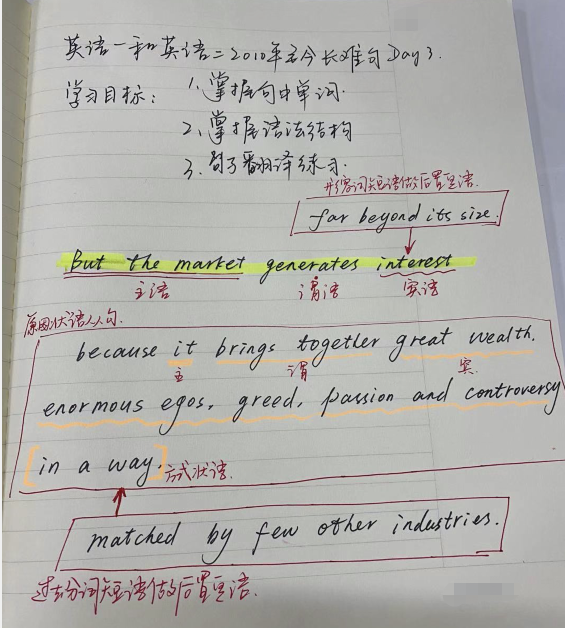 英语一和英语二2010年至今长难句Day3.
学习目标: 1、掌握句中单词.
2、掌握语法结构
3、句子翻译练习.
形容词短语做后置定语.
far beyond its size.
But the market generates interest
主语 谓语 宾语
原因状语从句.
because it brings together great wealth.
主 谓 宾
enormous egos, greed, passion and controversy
[in a way.] 方式状语.
matched by few other industries.
过去分词短语做后置定语.